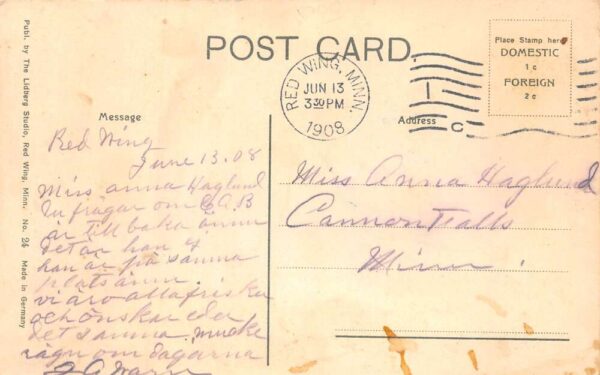 POST CARD.
Place Stamp here
DOMESTIC
1c
FOREIGN
2c
RED WING, MINN.
JUN 13
3 30 PM
1908
1
C
Publ. by The Lidberg Studio, Red Wing, Minn. No. 24 Made in Germany
Message
Red Wing
June 13. 08
Miss Anna Haglund
Du frågar om C.A.B
är till baka ännu
det är han
han är på samma
plats ännu.
vi äro alla friska
och önskar eder
det samma mycke
rägn om dagarna
Address
Miss Anna Haglund
Cannon Falls
Minn.